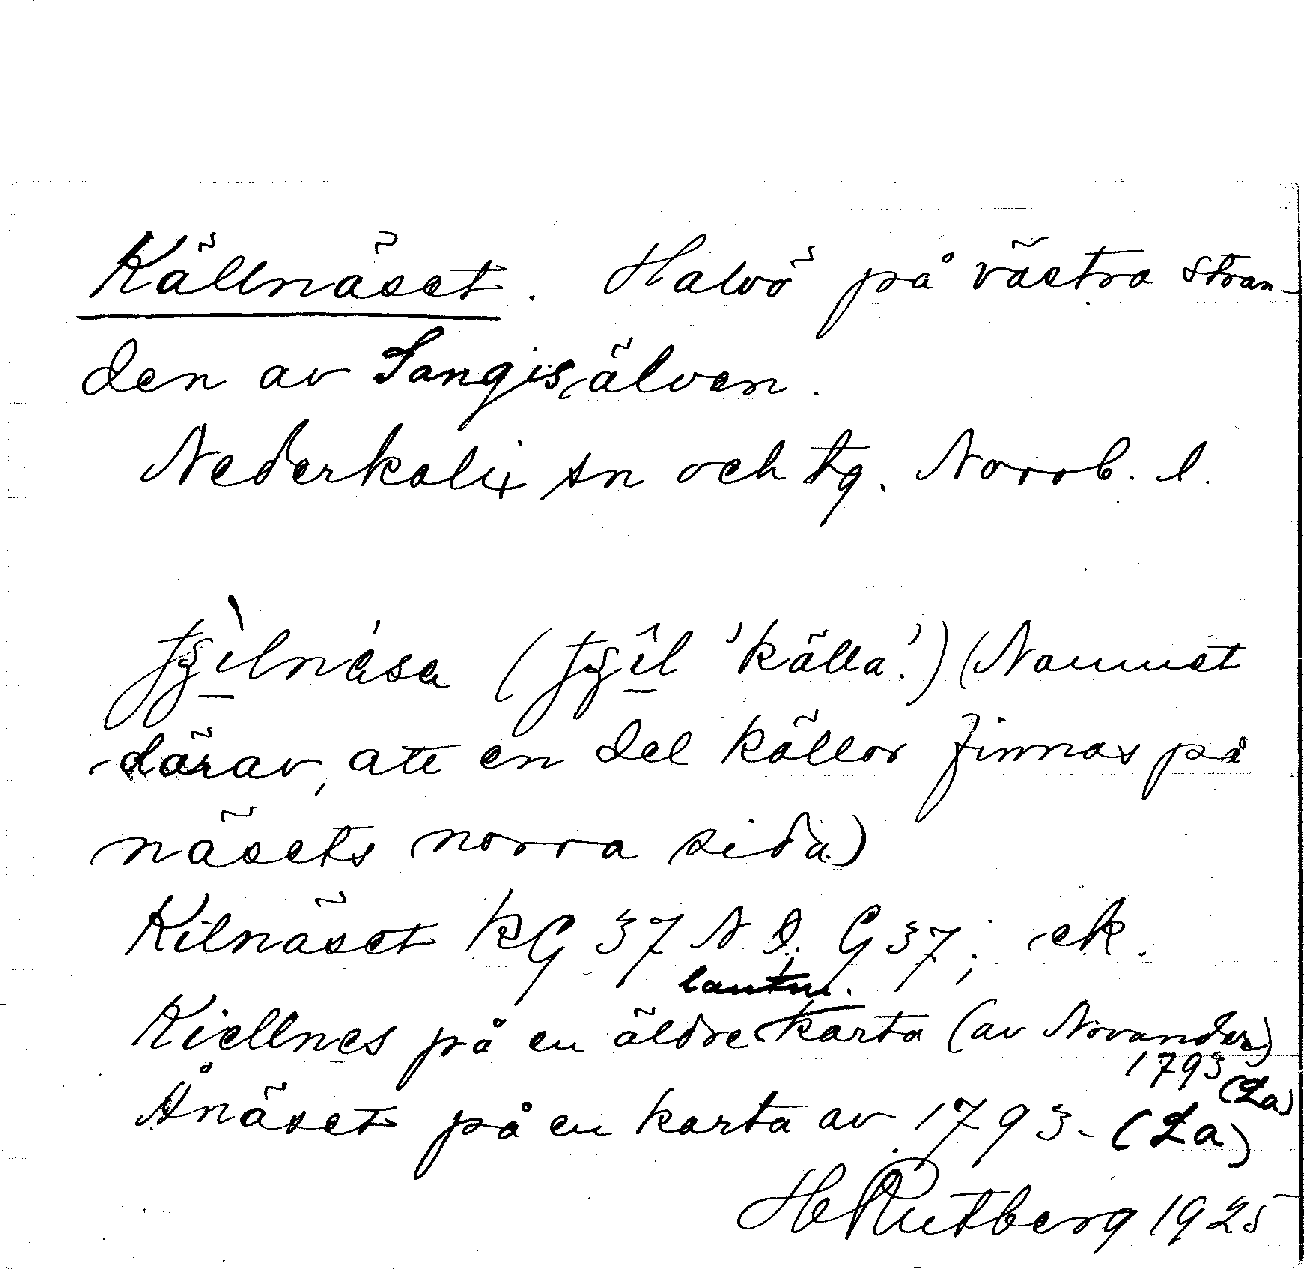 Källnäset. Halvö på västra stran-
den av Sangisälven.
Nederkalix sn och tg. Norrb. l.
(Namnet
'källa'.)
därav, att en del källor finnas på
näsets norra sida)
Kilnäset KG 37 N.D. G 37; ek.
lantm.
Kiellnes på en äldre karta (av Novander)
1793 (La)
Ånäset på en karta av 1793. (La)
H Rutberg 1925